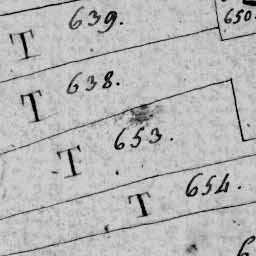 T 639.
650.
T 638.
T 653.
T 654.